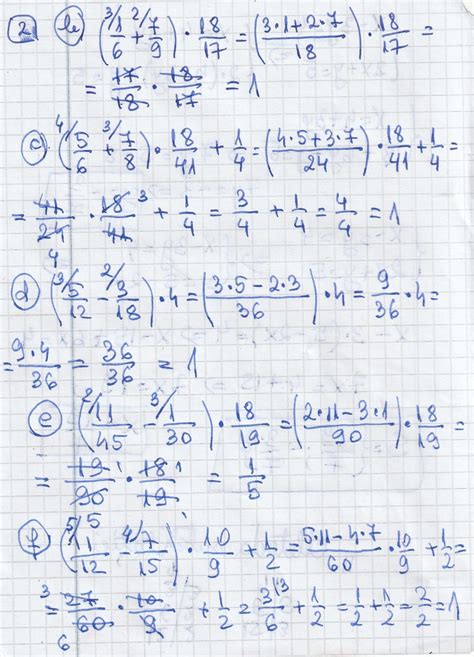 2 b) (³⁄1/6 + ²⁄7/9) · 18/17 = ((3·1+2·7)/18) · 18/17 =
= 17/18 · 18/17 = 1
c) (⁴⁄5/6 + ³⁄7/8) · 18/41 + 1/4 = ((4·5+3·7)/24) · 18/41 + 1/4 =
= 41/24 4 · 18 3/41 + 1/4 = 3/4 + 1/4 = 4/4 = 1
d) (³⁄5/12 - ²⁄3/18) · 4 = ((3·5-2·3)/36) · 4 = 9/36 · 4 =
= 9·4/36 = 36/36 = 1
e) (²⁄11/45 - ³⁄1/30) · 18/19 = ((2·11-3·1)/90) · 18/19 =
= 19 1/90 · 18 1/19 = 1/5
f) (⁵⁄11/12 - ⁴⁄7/15) · 10/9 + 1/2 = (5·11-4·7)/60 · 10/9 + 1/2 =
= 3 27/60 6 · 10/9 + 1/2 = 3/6 + 1/2 = 1/2 + 1/2 = 2/2 = 1